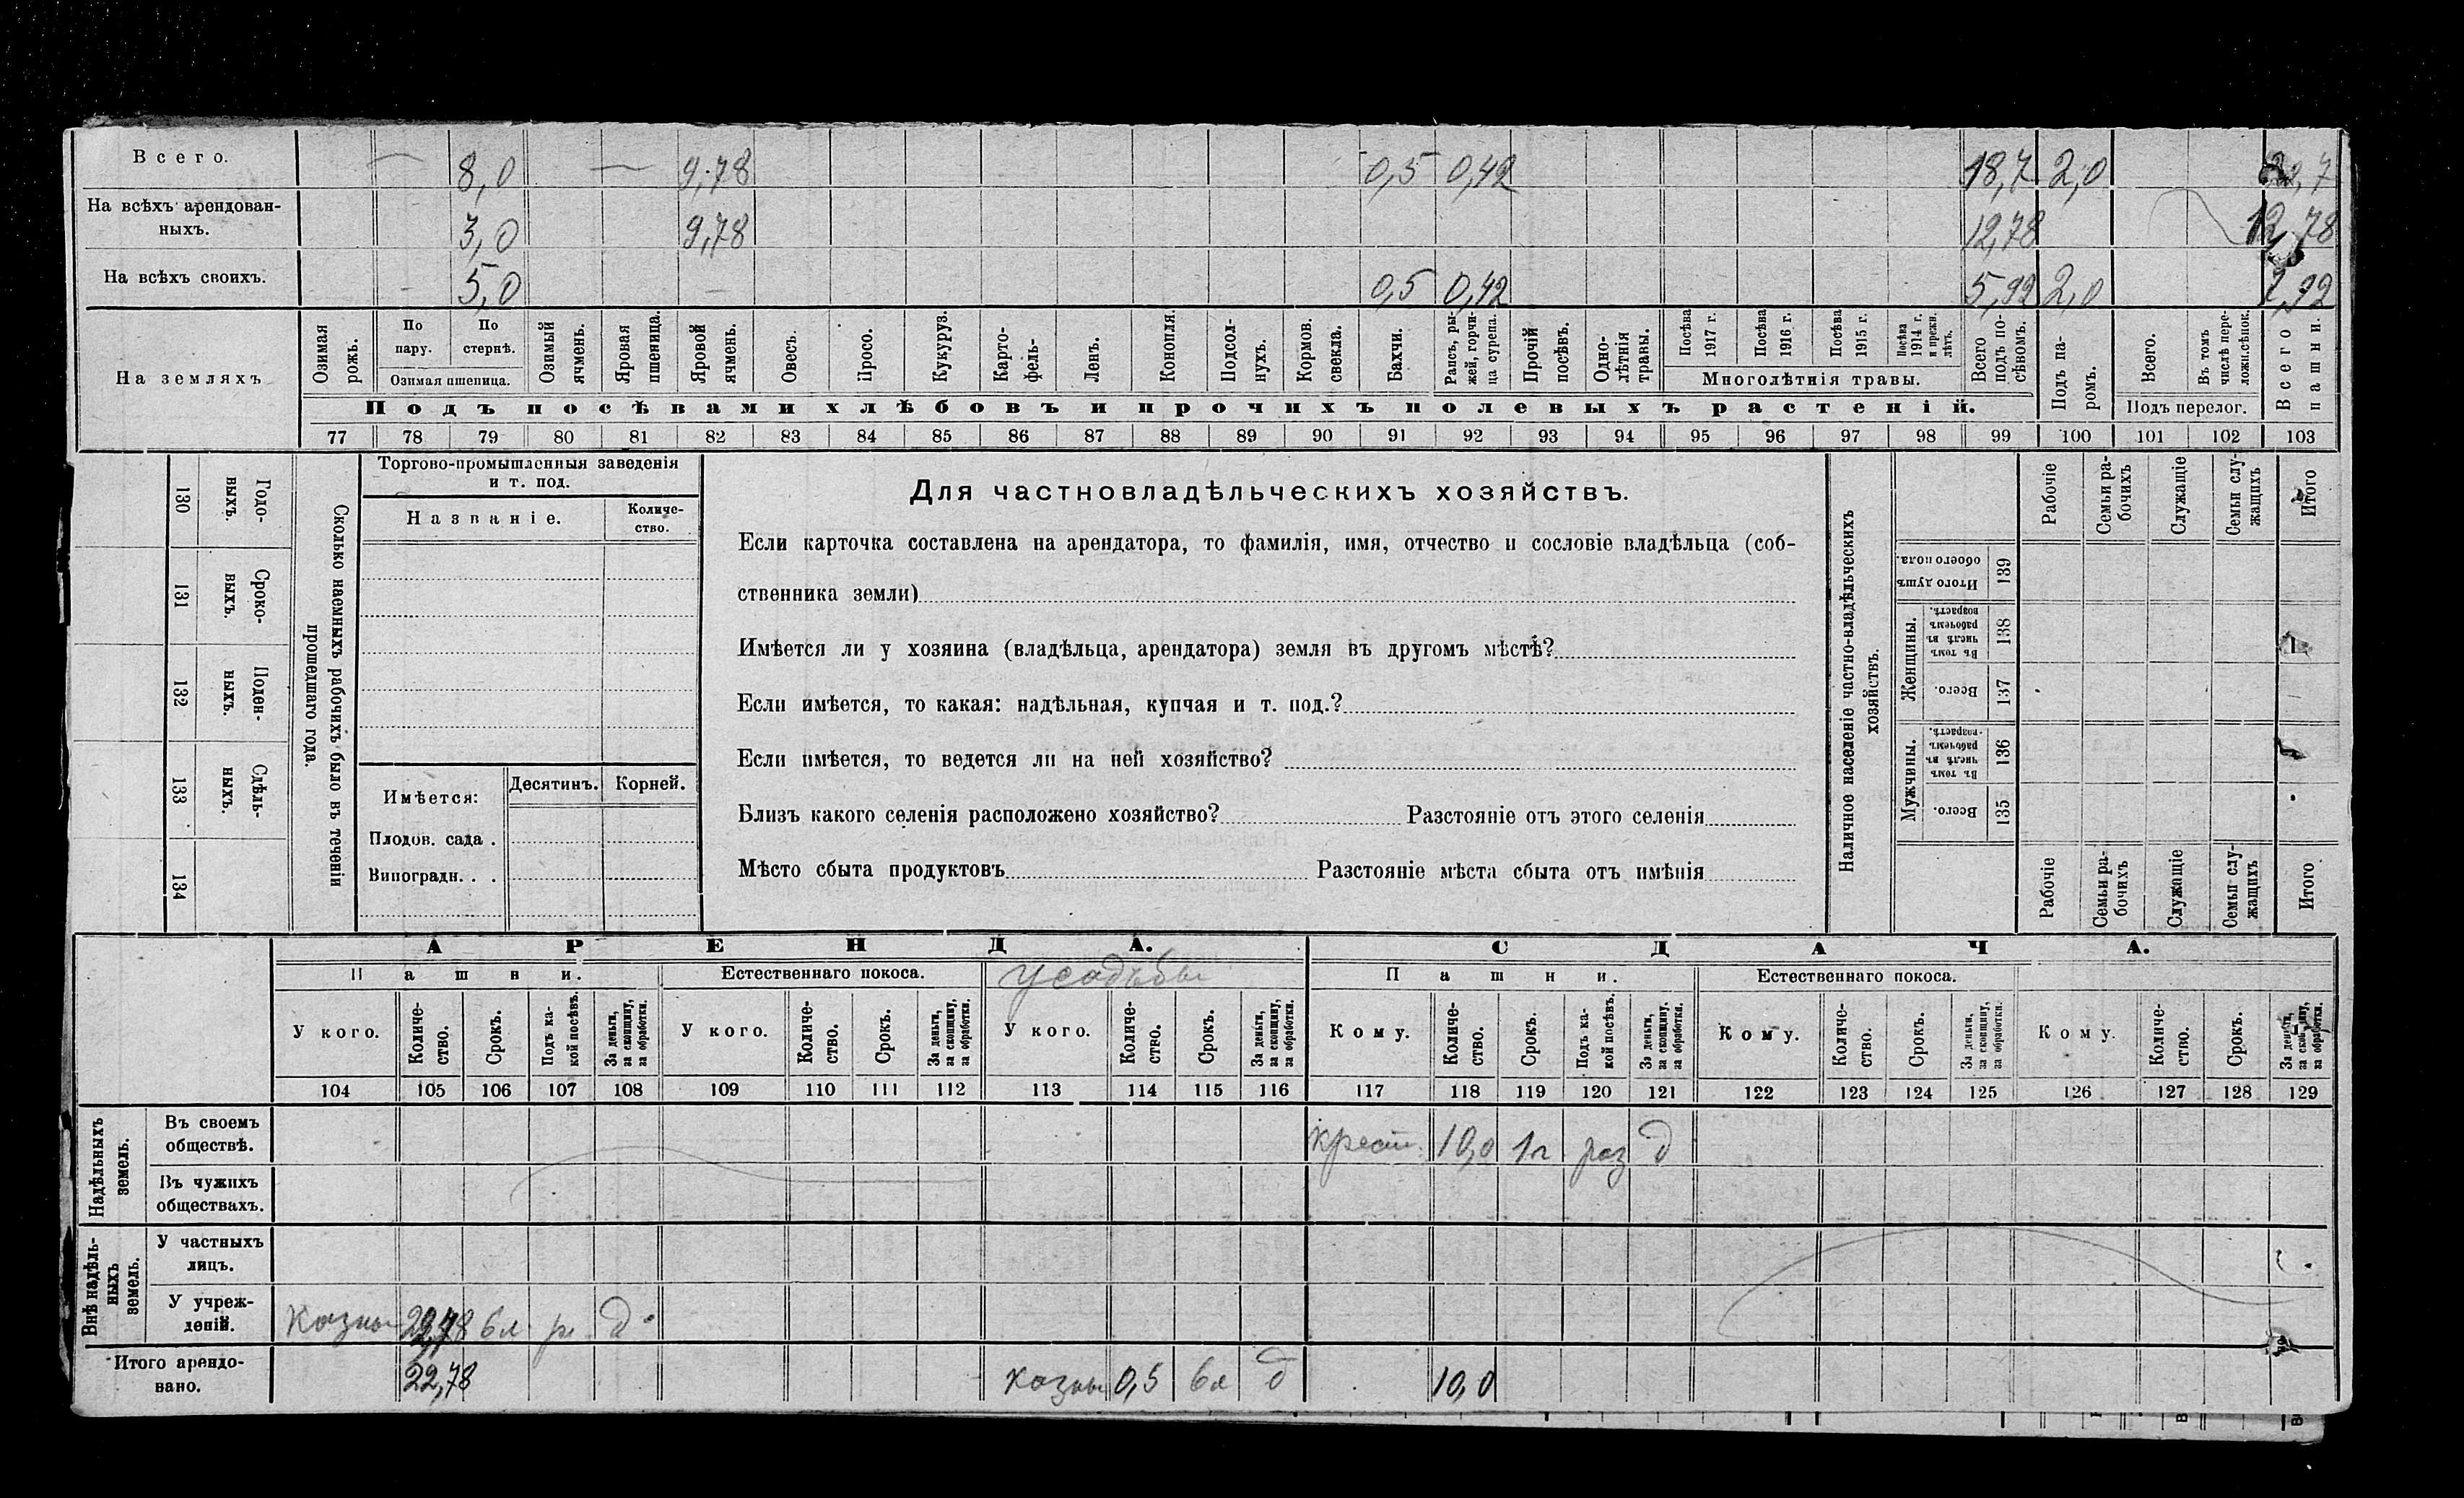 Всего. — 8,0 — 9,78 0,5 0,42 18,7 2,0
На всѣхъ арендован-
ныхъ. 3,0 9,78 12,78 12,78
На всѣхъ своихъ. 5,0 0,5 0,42 5,92 2,0 7,92
На земляхъ
Озимая рожь.
По пару.
По стернѣ.
Озимая пшеница.
Озимый ячмень.
Яровая пшеница.
Яровой ячмень.
Овесъ.
Просо.
Кукуруз.
Карто-
фель-
Ленъ.
Конопля.
Подсол-
нухъ.
Кормов.
свекла.
Бахчи.
Рапсъ, ры-
жей, горчи-
ца сурепа.
Прочій
посѣвъ.
Одно-
лѣтнія
травы.
Посѣва
1917 г.
Посѣва
1916 г.
Посѣва
1915 г.
Посѣва
1914 г.
и прежн.
лѣтъ.
Многолѣтнія травы.
Всего
подъ по-
сѣвомъ.
Подъ па-
ромъ.
Всего.
Въ томъ
числѣ пере-
ложн.сѣнок.
Подъ перелог.
Всего
пашни.
Подъ посѣвами хлѣбовъ и прочихъ полевыхъ растеній.
77 78 79 80 81 82 83 84 85 86 87 88 89 90 91 92 93 94 95 96 97 98 99 100 101 102 103
130 Годо-
ныхъ.
131 Сроко-
выхъ.
132 Поден-
ныхъ.
133 Сдѣль-
ныхъ.
134
Сколько наемныхъ рабочихъ было въ теченіи
прошедшаго года.
Торгово-промышленныя заведенія
и т. под.
Названіе.
Количе-
ство.
Имѣется:
Десятинъ.
Корней.
Плодов. сада .
Виноградн. . .
Для частновладѣльческихъ хозяйствъ.
Если карточка составлена на арендатора, то фамилія, имя, отчество и сословіе владѣльца (соб-
ственника земли)
Имѣется ли у хозяина (владѣльца, арендатора) земля въ другомъ мѣстѣ?
Если имѣется, то какая: надѣльная, купчая и т. под.?
Если имѣется, то ведется ли на ней хозяйство?
Близъ какого селенія расположено хозяйство? Разстояніе отъ этого селенія
Мѣсто сбыта продуктовъ Разстояніе мѣста сбыта отъ имѣнія
Наличное населеніе частно-владѣльческихъ
хозяйствъ.
Рабочіе
Семьи ра-
бочихъ
Служащіе
Семьи слу-
жащихъ
Итого
Итого душъ
обоего пола.
139
Женщины.
Въ томъ
числѣ въ
рабочемъ
возрастѣ.
138
Всего.
137
Мужчины.
Въ томъ
числѣ въ
рабочемъ
возрастѣ.
136
Всего.
135
Рабочіе
Семьи ра-
бочихъ
Служащіе
Семьи слу-
жащихъ
Итого
АРЕНДА. СДАЧА.
Пашни. Естественнаго покоса. усадьбы Пашни. Естественнаго покоса.
У кого.
Количе-
ство.
Срокъ.
Подъ ка-
кой посѣвъ.
За деньги,
за скопщину,
за обработки.
У кого.
Количе-
ство.
Срокъ.
За деньги,
за скопщину,
за обработки.
У кого.
Количе-
ство.
Срокъ.
За деньги,
за скопщину,
за обработки.
Кому.
Количе-
ство.
Срокъ.
Подъ ка-
кой посѣвъ.
За деньги,
за скопщину.
за обработки.
Кому.
Количе-
ство.
Срокъ.
За деньги,
за скопщину,
за обработки.
Кому.
Количе-
ство.
Срокъ.
За деньги,
за скопщину,
за обработки.
104 105 106 107 108 109 110 111 112 113 114 115 116 117 118 119 120 121 122 123 124 125 126 127 128 129
Надѣльныхъ
земель.
Въ своемъ
обществѣ. крест. 10,0 1г раз д
Въ чужихъ
обществахъ.
Внѣ надѣль-
ныхъ
земель.
У частныхъ
лицъ.
У учреж-
деній. Казны 22,78 6л р д.
Итого арендо-
вано. 22,78 казны 0,5 6л д 10,0